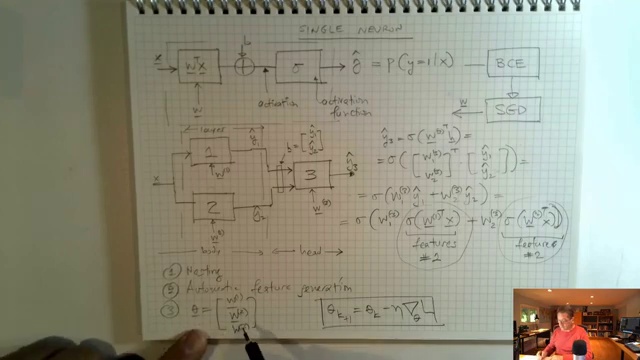 SINGLE NEURON
x → wᵀx → ⊕ → σ → ŷ = p(y=1|x) — BCE
b
w
activation
activation function
w
SGD
layer
ŷ₁
1
w⁽¹⁾
h = [ŷ₁ ŷ₂]
x
3
ŷ₃
w⁽³⁾
2
ŷ₂
w⁽²⁾
head
ŷ₃ = σ(w⁽³⁾ᵀ h) =
= σ([w₁⁽³⁾ w₂⁽³⁾]ᵀ [ŷ₁ ŷ₂]) =
= σ(w₁⁽³⁾ ŷ₁ + w₂⁽³⁾ ŷ₂) =
= σ(w₁⁽³⁾ σ(w⁽¹⁾ᵀ x) + w₂⁽³⁾ σ(w⁽²⁾ᵀ x))
features #2
feature #2
① Nesting
② Automatic feature generation
③ θ = [w⁽¹⁾ w⁽²⁾ w⁽³⁾]
θₖ₊₁ = θₖ − η ∇θ L